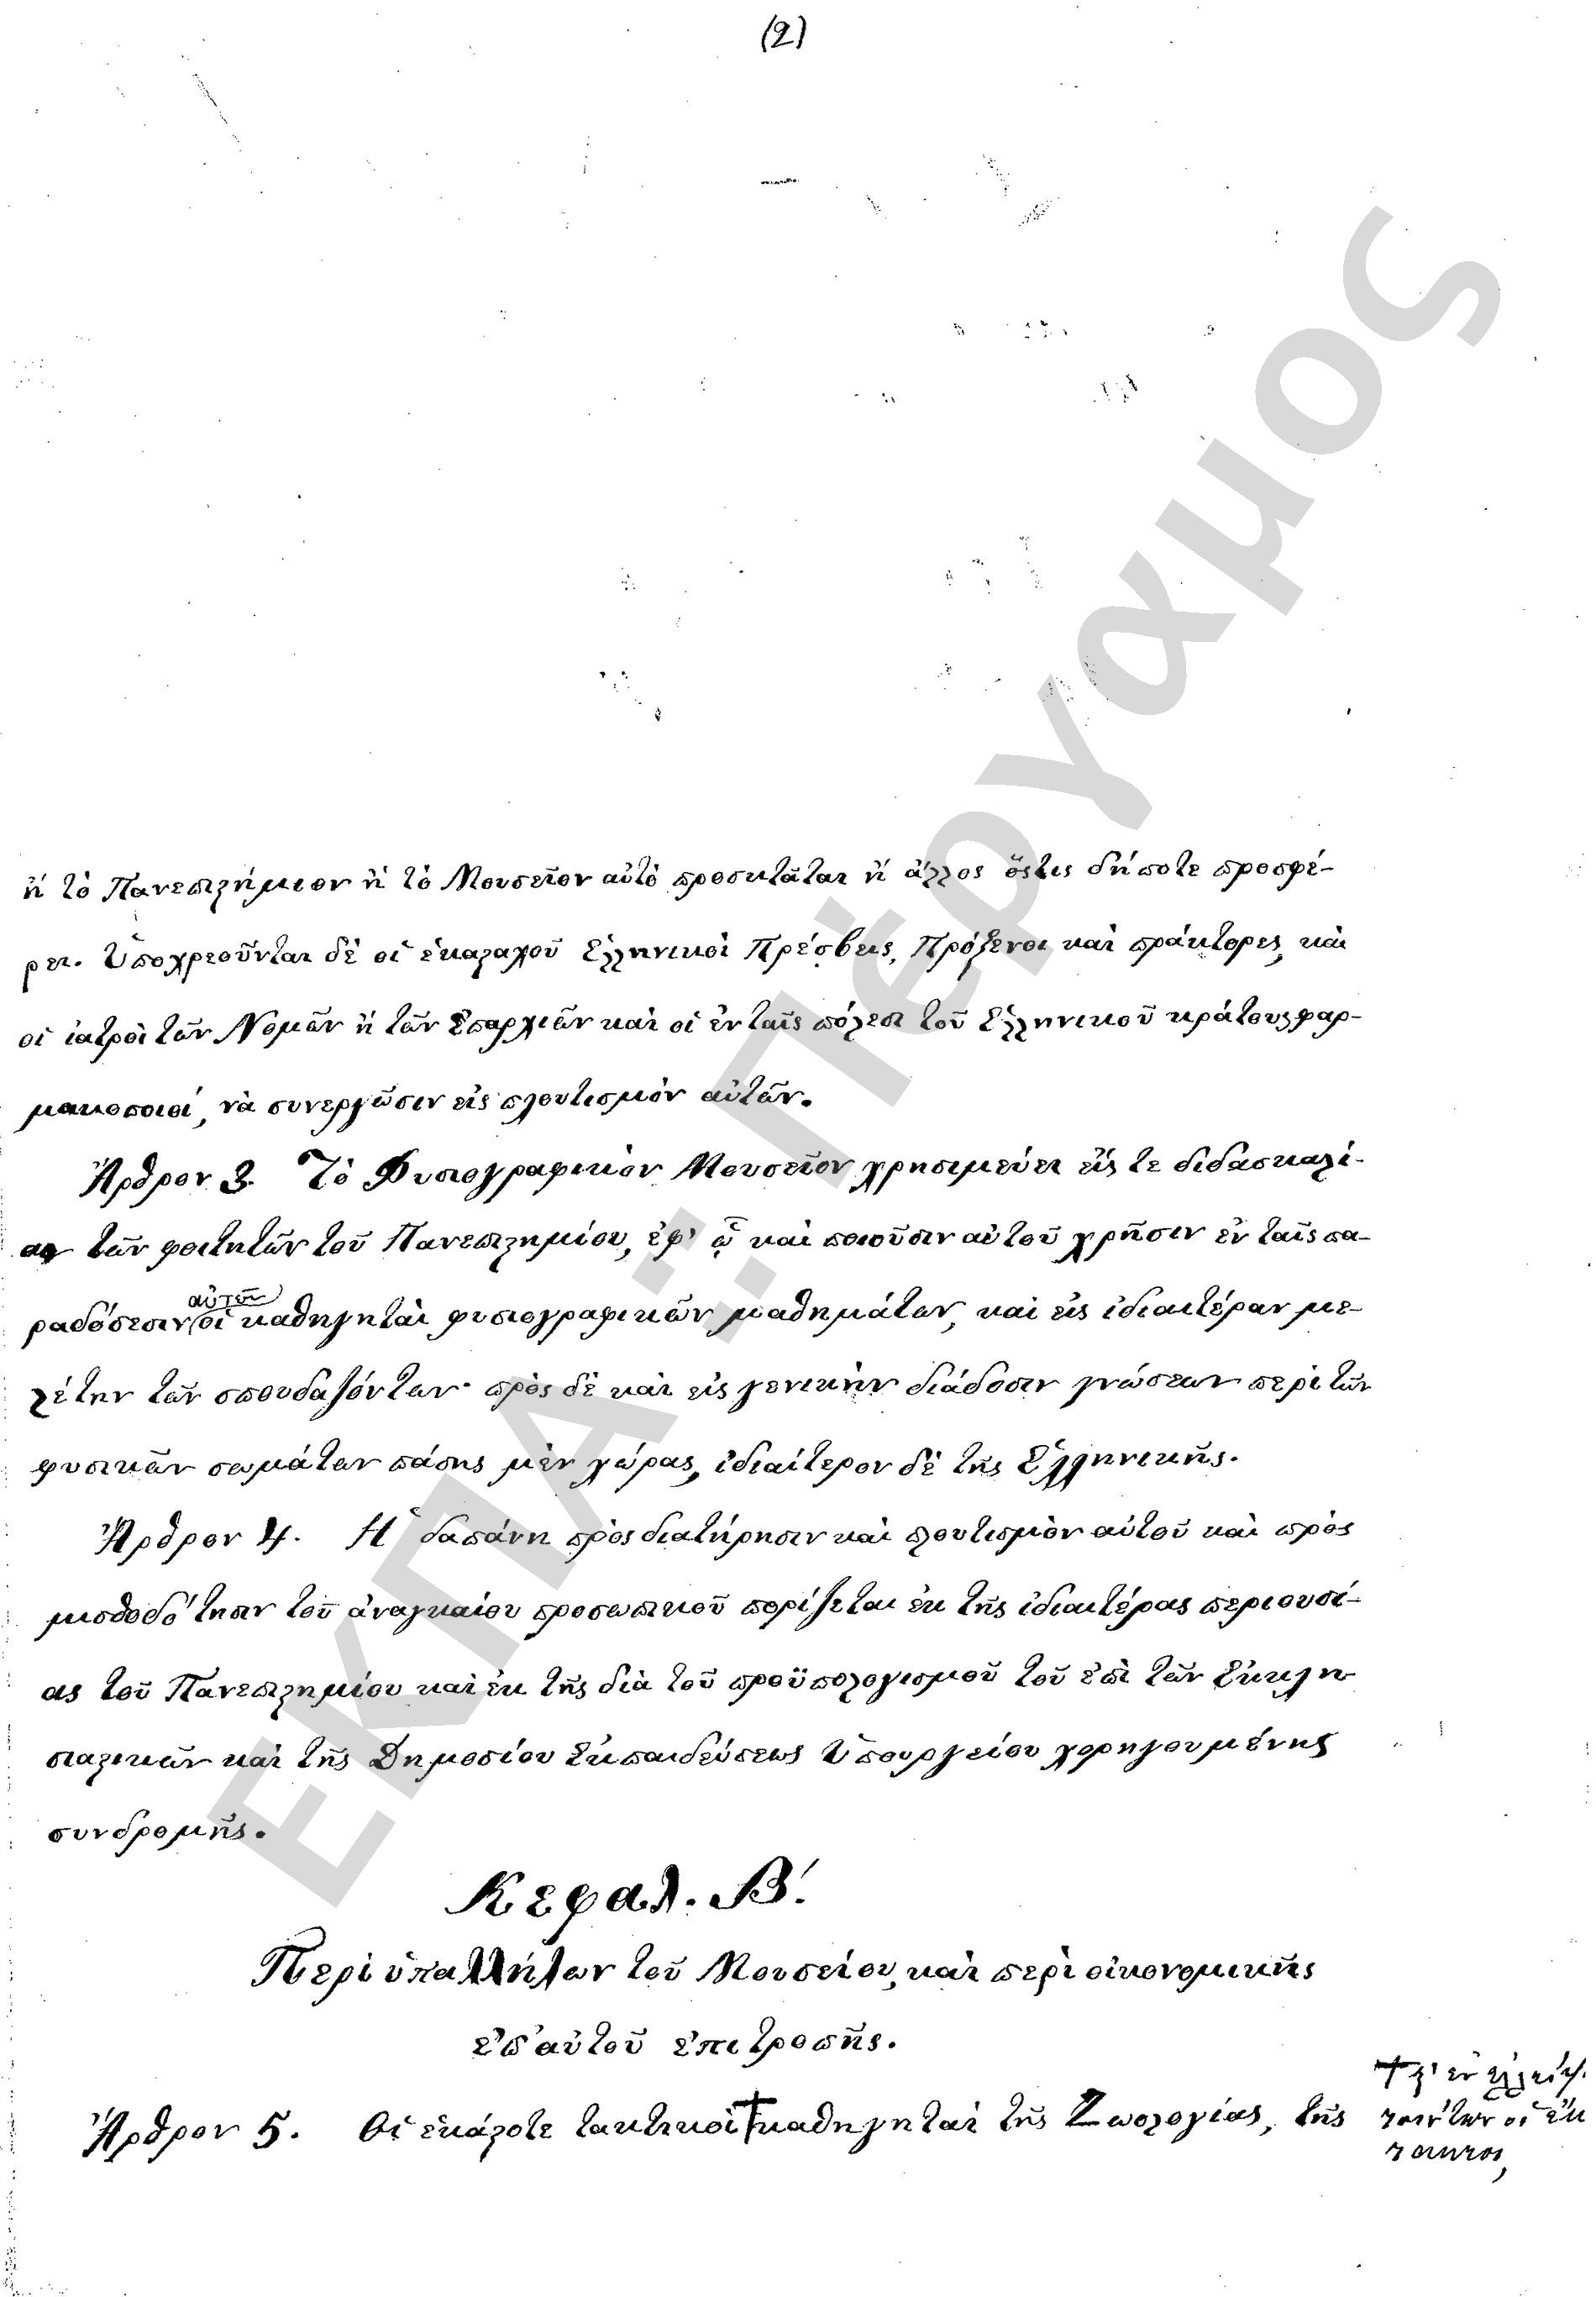 (2)
ἢ τὸ Πανεπιστήμιον ἢ τὸ Μουσεῖον αὐτὸ προσκτᾶται ἢ ἄλλος ὅςτις δήποτε προσφέ-
ρει. Ὑποχρεοῦνται δὲ οἱ ἑκασταχοῦ Ἑλληνικοὶ Πρέσβεις, Πρόξενοι καὶ πράκτορες, καὶ
οἱ ἰατροὶ τῶν Νομῶν ἢ τῶν Ἐπαρχιῶν καὶ οἱ ἐν ταῖς πόλεσι τοῦ Ἑλληνικοῦ κράτους φαρ-
μακοποιοί, νὰ συνεργῶσιν εἰς πλουτισμὸν αὐτῶν.
Ἄρθρον 3. Τὸ Φυσιογραφικὸν Μουσεῖον χρησιμεύει εἴς τε διδασκαλί-
αν τῶν φοιτητῶν τοῦ Πανεπιστημίου, ἐφ' ᾧ καὶ ποιοῦσιν αὐτοῦ χρῆσιν ἐν ταῖς πα-
ραδόσεσιν αὐτῶν οἱ καθηγηταὶ φυσιογραφικῶν μαθημάτων, καὶ εἰς ἰδιαιτέραν με-
λέτην τῶν σπουδαζόντων· πρὸς δὲ καὶ εἰς γενικὴν διάδοσιν γνώσεων περὶ τῶν
φυσικῶν σωμάτων πάσης μὲν χώρας, ἰδιαίτερον δὲ τῆς Ἑλληνικῆς.
Ἄρθρον 4. Ἡ δαπάνη πρὸς διατήρησιν καὶ πλουτισμὸν αὐτοῦ καὶ πρὸς
μισθοδότησιν τοῦ ἀναγκαίου προσωπικοῦ πορίζεται ἐκ τῆς ἰδιαιτέρας περιουσί-
ας τοῦ Πανεπιστημίου καὶ ἐκ τῆς διὰ τοῦ προϋπολογισμοῦ τοῦ ἐπὶ τῶν Ἐκκλη-
σιαστικῶν καὶ τῆς Δημοσίου Ἐκπαιδεύσεως Ὑπουργείου χορηγουμένης
συνδρομῆς.
Κεφαλ. Β'.
Περὶ ὑπαλλήλων τοῦ Μουσείου, καὶ περὶ οἰκονομικῆς
ἐπ' αὐτοῦ ἐπιτροπῆς.
Ἄρθρον 5. Οἱ ἑκάστοτε τακτικοὶ + καθηγηταὶ τῆς Ζωολογίας, τῆς
ΕΚΠΑ: Πέργαμος